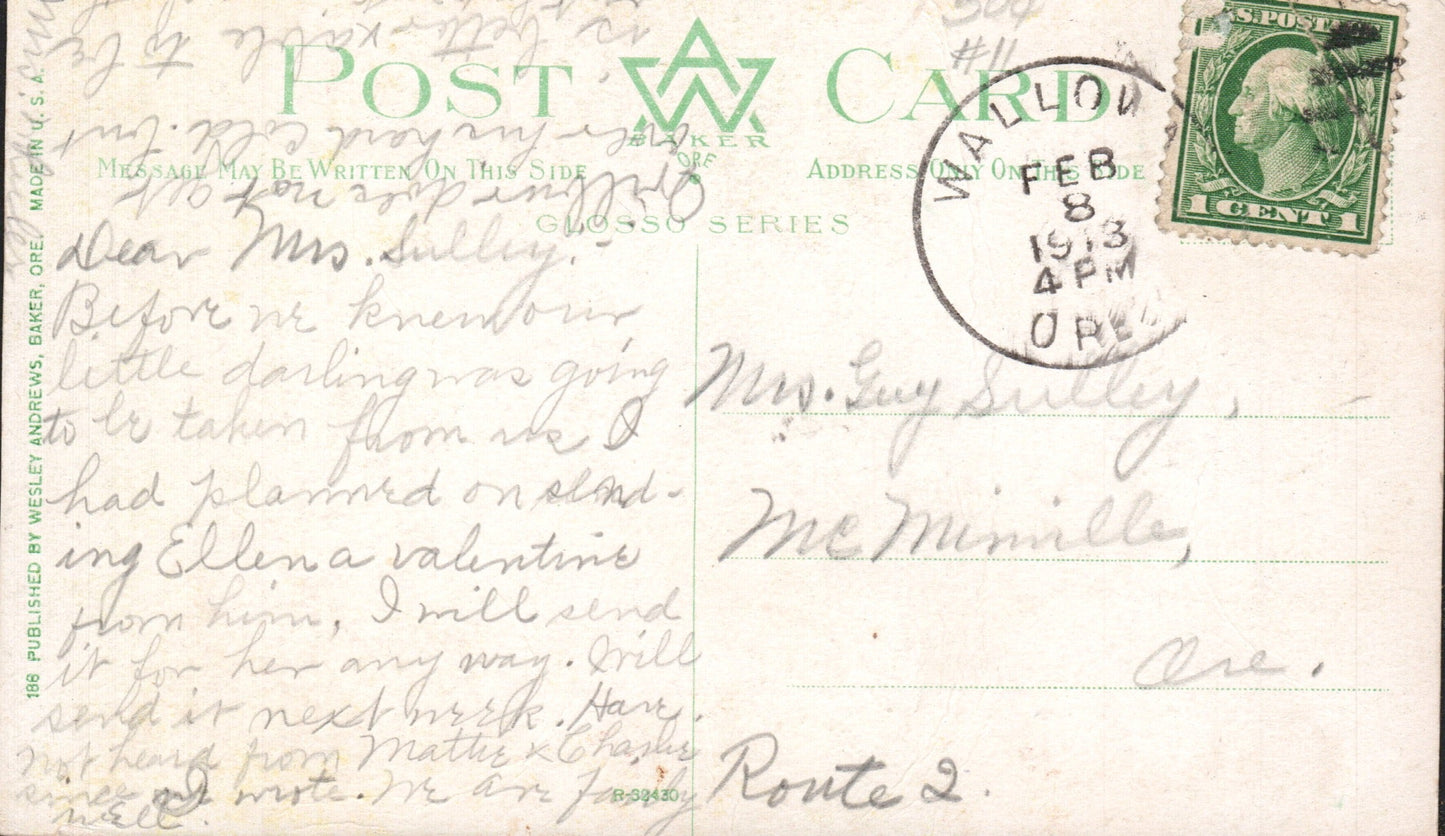 POST CARD
BAKER
ORE
MESSAGE MAY BE WRITTEN ON THIS SIDE
ADDRESS ONLY ON THIS SIDE
GLOSSO SERIES
504
#11
WALLOWA
FEB
8
1913
4 PM
ORE
U.S. POSTAGE
1 CENT 1
Dear Mrs. Sulley:-
Before we knew our
little darling was going
to be taken from us I
had planned on send-
ing Ellen a valentine
from him, I will send
it for her any way. Will
send it next week. Have
not heard from Mattie & Charlie
since I wrote. We are fairly
well.
does not get
over his hard cold. but
is better & able to be
Mrs. Guy Sulley,
Mc Minville,
Ore.
Route 2.
R-32430
186 PUBLISHED BY WESLEY ANDREWS, BAKER, ORE. MADE IN U. S. A.